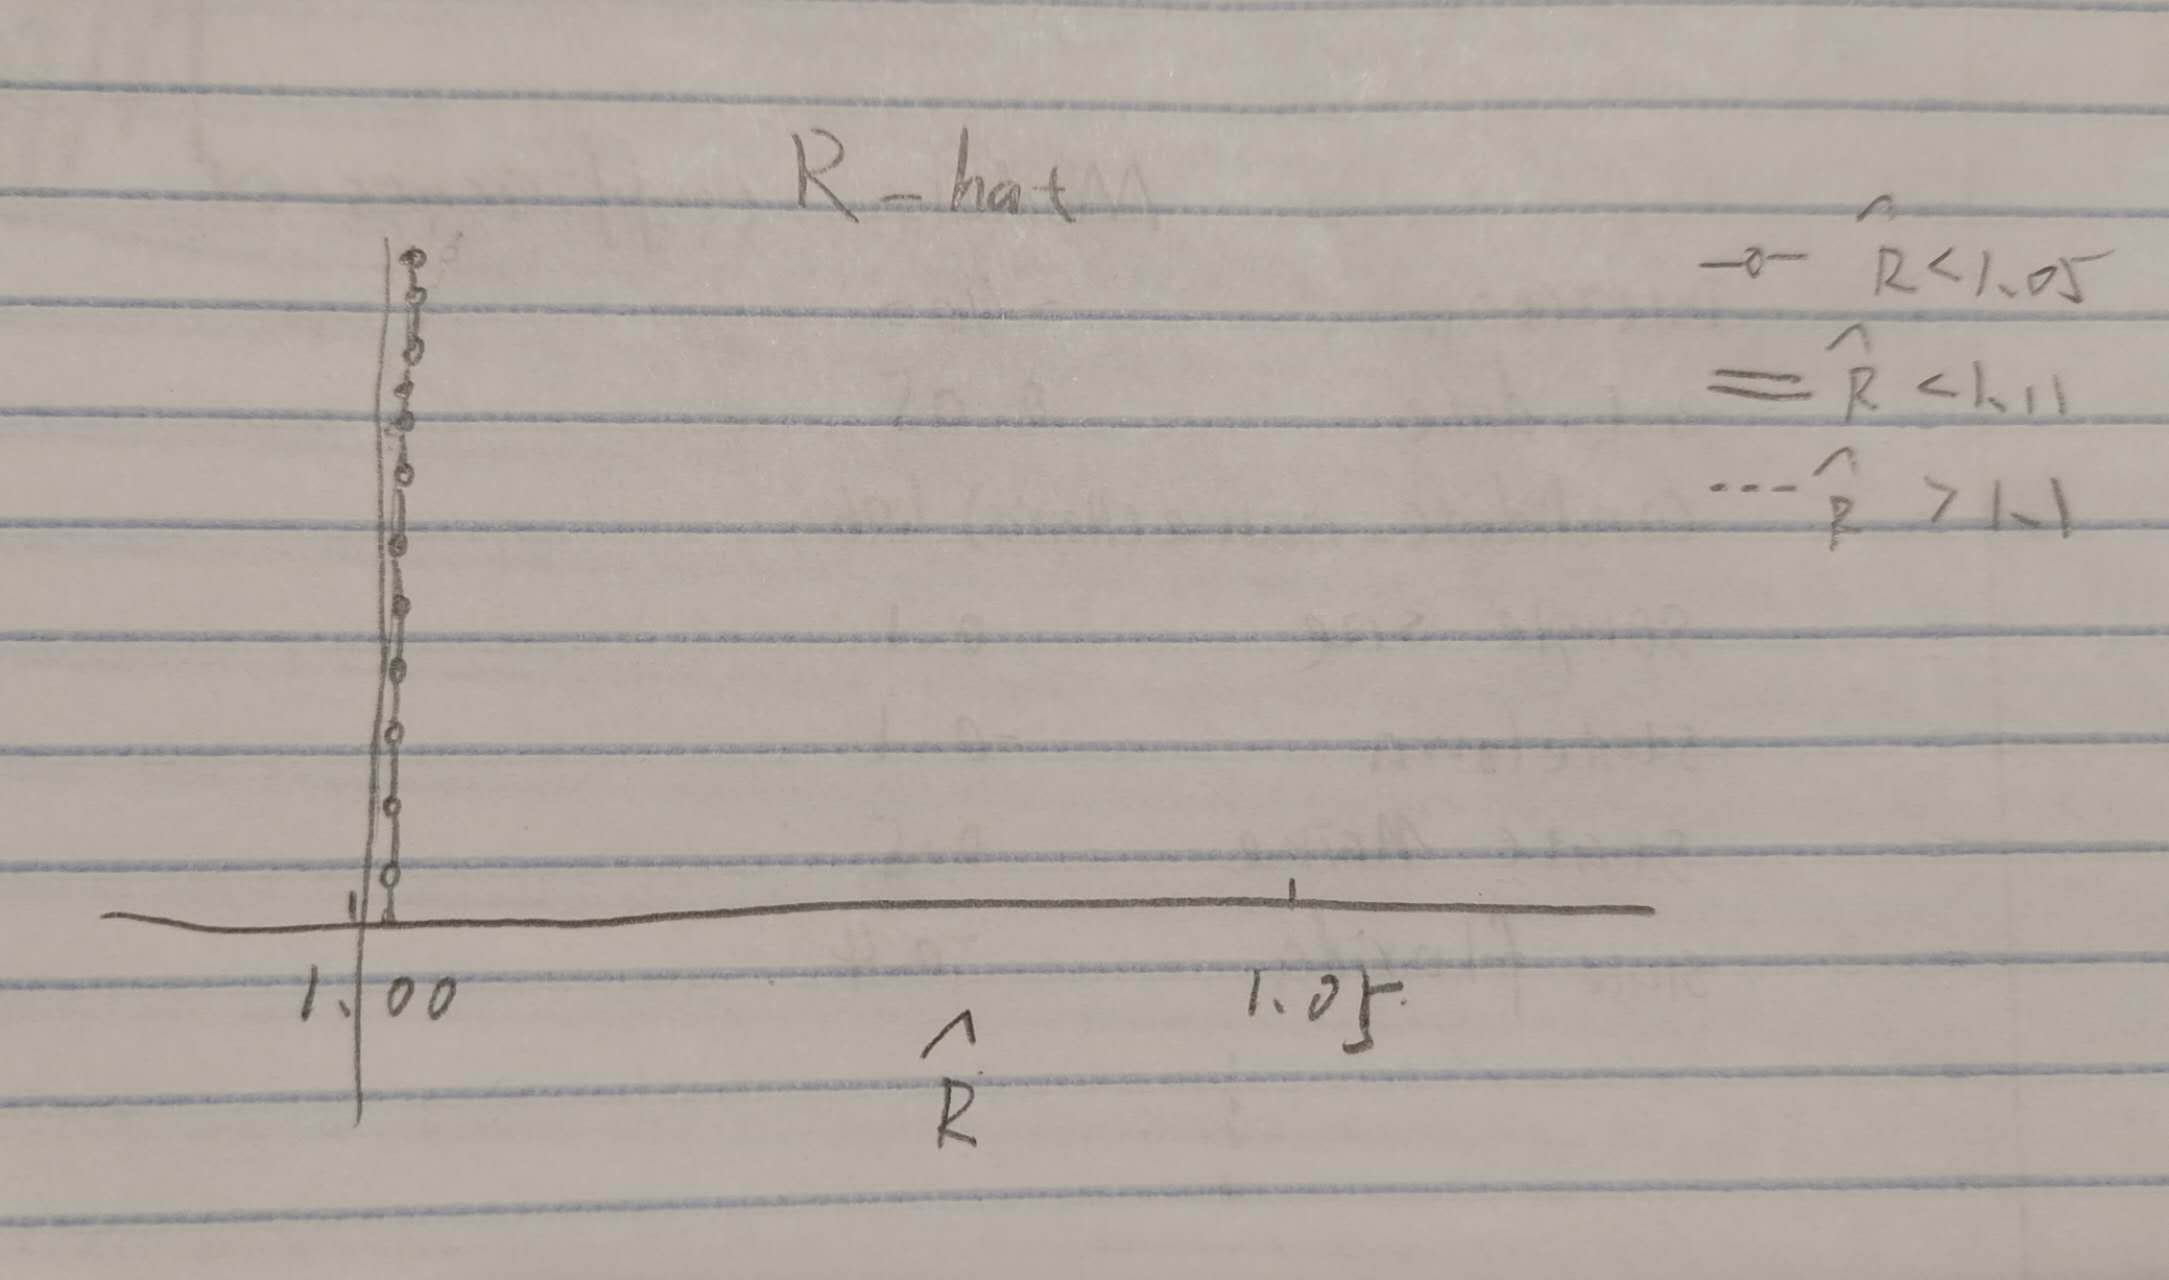 R-hat
R̂ < 1.05
R̂ < 1.11
R̂ > 1.1
1.00
1.05
R̂